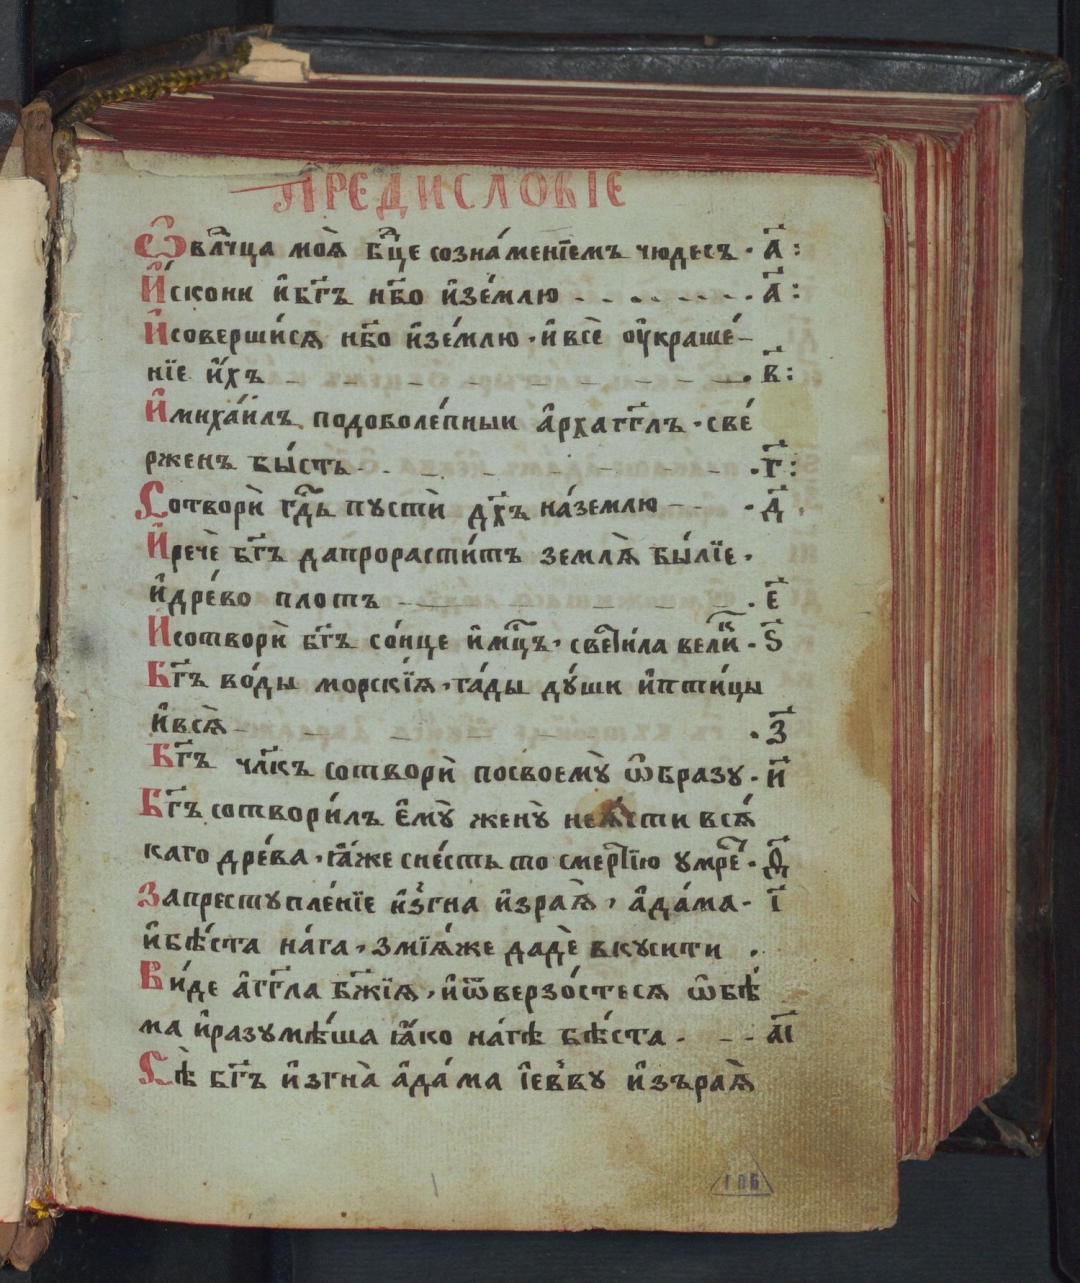 ПРЕДИСЛОВІЕ
Ѡ влⷣчца моѧ̀ бц҃е сознаменїемъ чюдесъ · а҃ :
И҆скони и҆ бг҃ъ нб҃о и҆ зе́млю - - . . - - - . а҃ :
И҆ соверши́сѧ нб҃о и҆ зе́млю · и҆ всѐ ᲂу҆краше́-
нїе и҆́хъ . в҃ :
И҆ миха́илъ подоболе́пныи а҆рхаг҃глъ · све́
рженъ бы́сть . г҃ :
Сотворѝ гдⷭ҇ь пустѝ дх҃ъ на́землю - - · д҃ .
И҆ речѐ бг҃ъ да прорасти́тъ землѧ̀ бы́лїе ·
и҆ дре́во плотъ . е҃
И҆ сотворѝ бг҃ъ со́нце и҆ мцⷭ҇ъ · свети́ла вели́кⷯ · ѕ҃
Бг҃ъ во́ды морскі́ѧ · га́ды дꙋ́ши и҆ пти́цы
и҆ всѧ̀ . з҃
Бг҃ъ чл҃къ сотворѝ по своемꙋ̀ ѡ҆́бразꙋ · и҃
Бг҃ъ сотвори́лъ є҆мꙋ̀ женꙋ̀ не ꙗ҆́сти всѧ́
каго дре́ва · ꙗ҆́же снѣсть то сме́ртїю умре́ · ѳ҃
За преступле́нїе и҆згна и҆з раѧ̀ · а҆да́ма · і҃
и҆ бѣ́ста на́га · змїѧ́же дадѐ вкусити .
Ви́де а҆г҃гла бж҃їѧ · и҆ ѿверзо́стесѧ ѡ҆бѣ́
ма и҆ разумѣ́ша ꙗ҆́ко на́гѣ бѣ́ста . - - а҃і
Сѐ бг҃ъ и҆згна̀ а҆да́ма і҆ е҆́ввꙋ и҆зъ раѧ̀
ГПБ